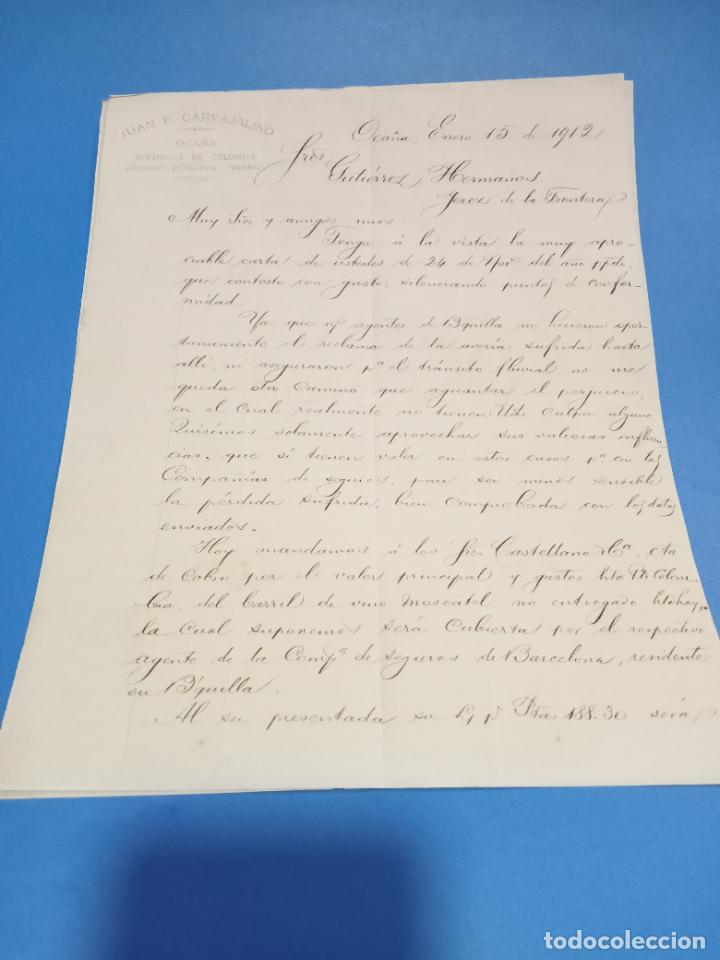 JUAN F. CARVAJALINO
OCAÑA
REPUBLICA DE COLOMBIA
Ocaña, Enero 15 de 1912
Srès
Gutiérrez Hermanos,
Jerez de la Frontera
Muy Srès y amigos mios:
Tengo á la vista la muy apre-
ciable carta de ustedes de 24 de Novè del año ppdo.
que contesto con gusto, silenciando puntos de confor-
midad.
Ya que n/ agentes de B'quilla no hicieron opor-
tunamente el reclamo de la avería sufrida hasta
allí, ni aseguraron pª el tránsito fluvial no me
queda otro camino que aguantar el perjuicio,
en el cual realmente no tienen Uds culpa alguna.
Quisimos solamente aprovechar sus valiosas influen-
cias, que sí tienen valor en estos casos pª con las
Compañías de seguros, para ser menos sensible
la pérdida sufrida, bien comprobada con los datos
enviados.
Hoy mandamos á los Srès Castellano & Cª. cta
de Cobro por el valor principal y gastos hta Pto Colom-
bia, del barril de vino Moscatel no entregado hta hoy,
la cual suponemos será cubierta por el respectivo
agente de la Compª. de seguros de Barcelona, residente
en B'quilla.
Al ser presentada su L/ pr Ptas 188.30 será
todocoleccion
todocoleccion.net